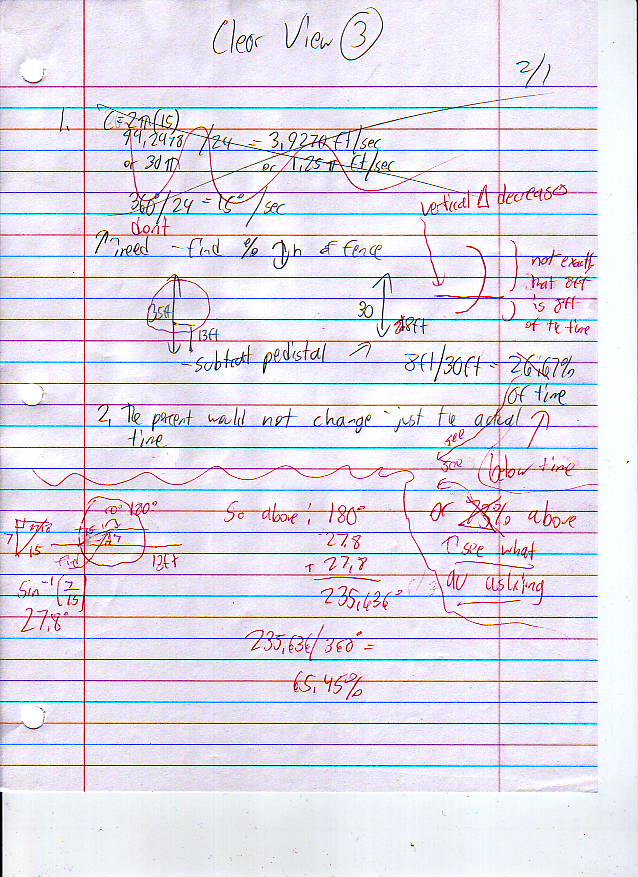 Clear View 3
2/1
1. C=2π(15)
94,2478 /24 = 3,9270 ft/sec
or 30π or 1,25π ft/sec
360°/24 = 15° /sec
vertical Δ decreases
don't
need - find % of fence
not exactly
that 8ft
is 8ft
of the time
35ft
30
13ft
28ft
- subtract pedistal
8ft/30ft = 26.67%
of time
2. The percent would not change - just the actual
time
see
see (below time
180°
So above: 180°
or 73% above
27.8
↑ see what
7
15
13ft
+ 27,8
asking
Sin⁻¹(7/15)
235,636°
27.8°
235,636/360° =
65,45%